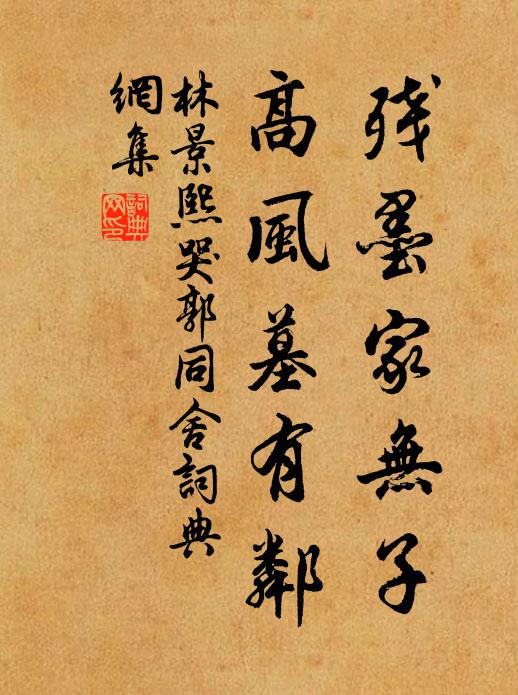 残墨家無子
高風墓有鄰
林景熙哭郭同舍詞典
網集
詞典
网印